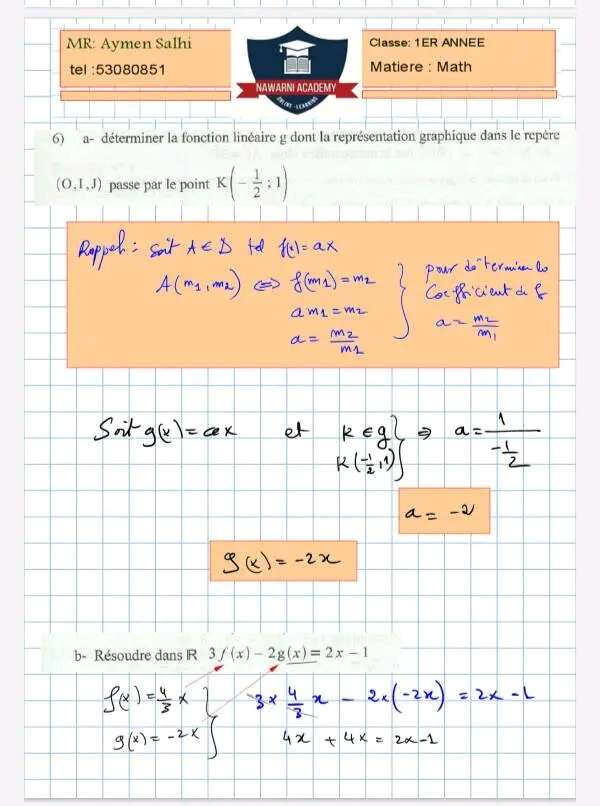 MR: Aymen Salhi
tel :53080851
NAWARNI ACADEMY
ONLINE - LEARNING
Classe: 1ER ANNEE
Matiere : Math
6) a- déterminer la fonction linéaire g dont la représentation graphique dans le repère
(O,I,J) passe par le point K(-1/2 ; 1)
Rappel : Soit A ∈ D tel f(x) = ax
A(m1, m2) ⇔ f(m1) = m2
a m1 = m2
a = m2/m1
pour déterminer le
Coefficient de f
a = m2/m1
Soit g(x) = ax et K ∈ g
K(-1/2, 1) ⇒ a = 1/(-1/2)
a = -2
g(x) = -2x
b- Résoudre dans IR 3f(x) - 2g(x) = 2x - 1
f(x) = 4/3 x
g(x) = -2x
3 × 4/3 x - 2×(-2x) = 2x - 1
4x + 4x = 2x - 1